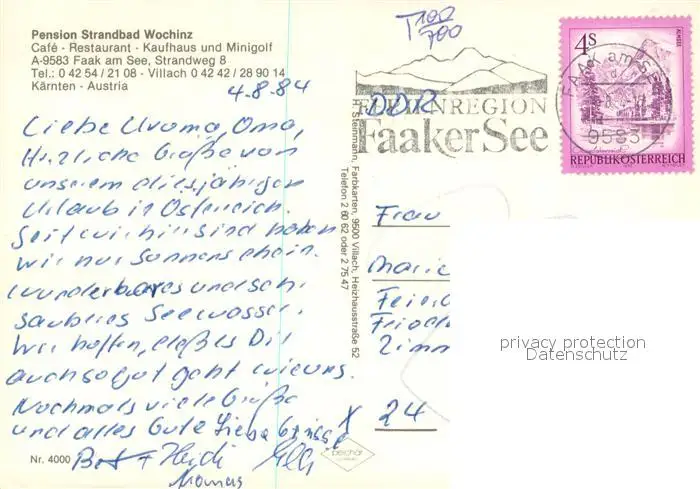 Pension Strandbad Wochinz
Café · Restaurant · Kaufhaus und Minigolf
A-9583 Faak am See, Strandweg 8
Tel.: 0 42 54 / 21 08 · Villach 0 42 42 / 28 90 14
Kärnten · Austria
4.8.84
Liebe Uroma, Oma,
Herzliche Grüße von
unserem diesjährigen
Urlaub in Österreich.
Seit wir hier sind haben
wir nur Sonnenschein.
Wunderbares und sehr
sauberes Seewasser.
Wir hoffen, daß es Dir
auch so gut geht wie uns.
Nochmals viele Grüße
und alles Gute Liebe Grüsse
Heidi Elli
Thomas
Nr. 4000
H. Steinmann, Farbkarten, 9500 Villach, Heizhausstraße 52
Telefon 2 60 62 oder 2 75 47
T 100/700
DDR
FERIENREGION
Faaker See
4S
ALMSEE
FAAK am SEE
9583
REPUBLIK ÖSTERREICH
Frau
Marie
Zimm
X 24
privacy protection
Datenschutz